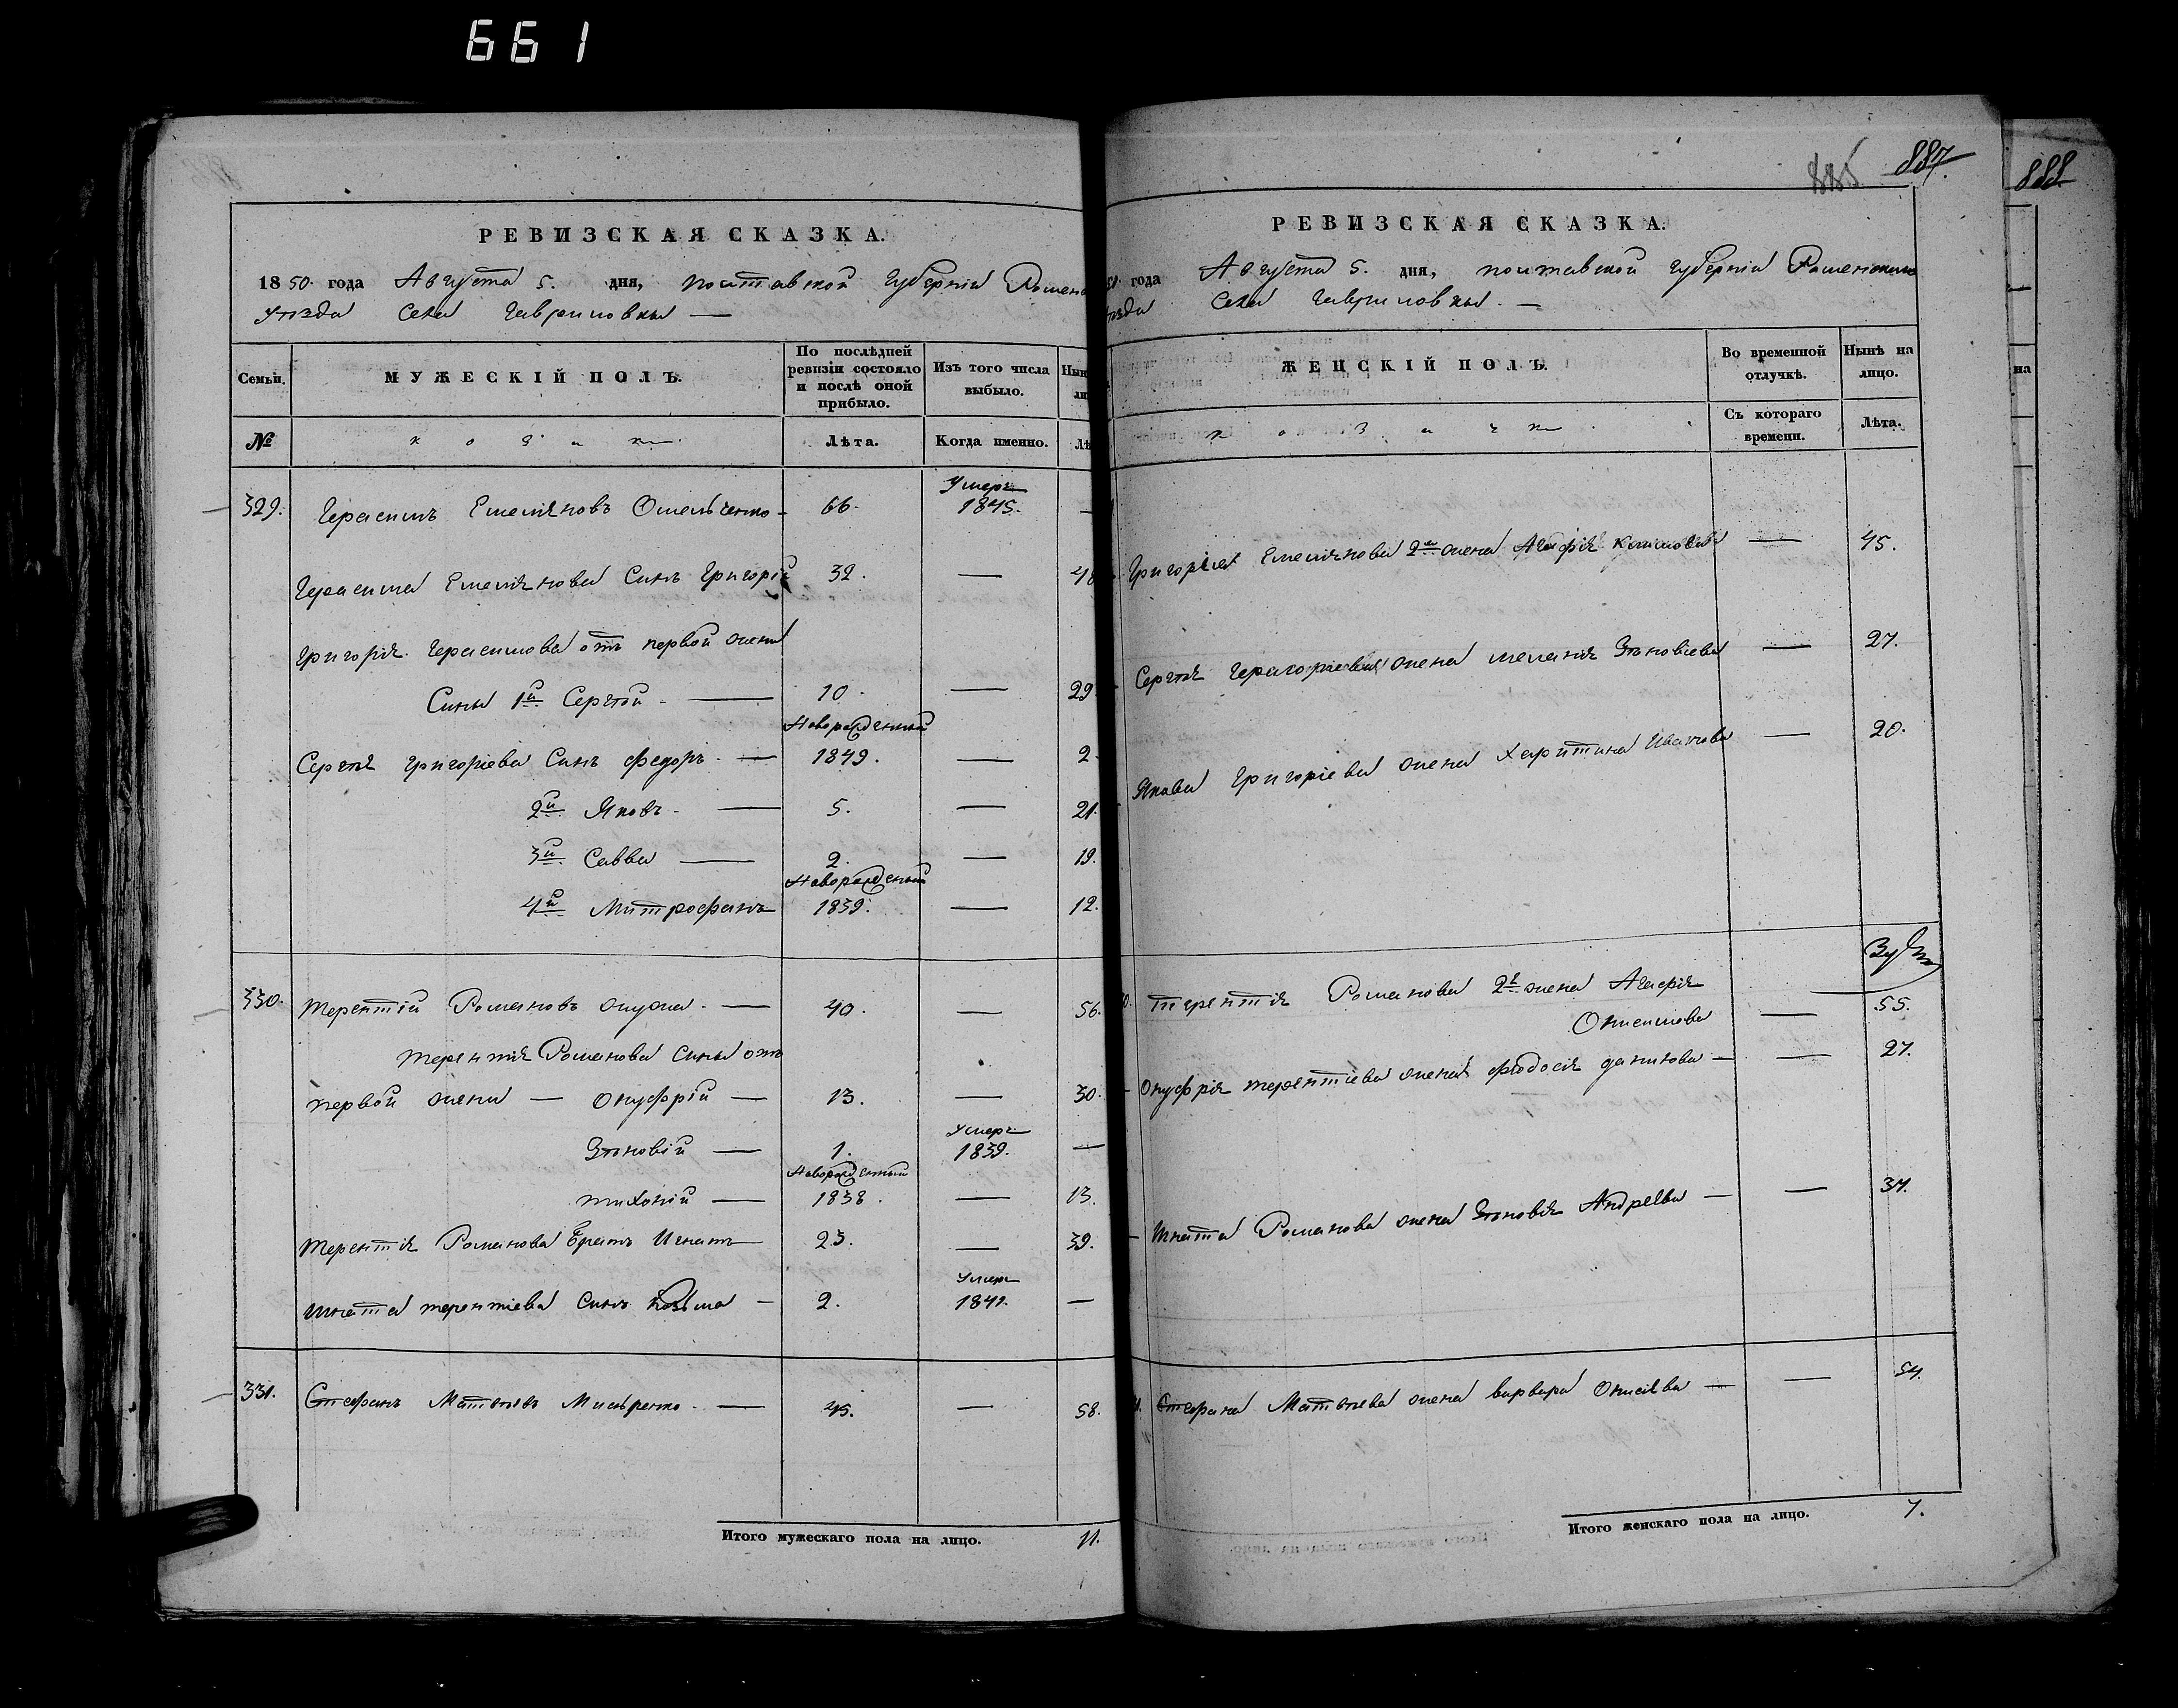 661
РЕВИЗСКАЯ СКАЗКА.
1850 года Августа 5. дня, Полтавской Губерніи Ромен
уѣзда Села Гавриловки —
Семьи.
МУЖЕСКІЙ ПОЛЪ.
По послѣдней ревизіи состояло и послѣ оной прибыло.
Изъ того числа выбыло.
№
к о з а к и
Лѣта.
Когда именно.
329. Герасимъ Емельяновъ Омельченко - 66. Умеръ 1845. —
Герасима Емельянова Сынъ Григорій 32. — 48
Григорія Герасимова отъ первой жены
Сыны 1й Сергѣй - — 10. — 29
Сергѣя Григоріева Сынъ Федоръ - — Новорожденный 1849. — 2.
2й Яковъ - — 5. — 21.
3й Савва — 2. — 19.
4й Митрофанъ Новорожденый 1839. — 12.
330. Терентій Романовъ - — 40. — 56.
Терентія Романова Сыны отъ
первой жены — Онуфрій — 13. — 30.
Зѣновій — 1. Умеръ 1839. —
Тихоній — Новорожденный 1838. — 13.
Терентія Романова Братъ Игнатъ 23. — 39.
Игната Терентіева Сынъ Козьма — 2. Умеръ 1841. —
331. Стефанъ Матвѣевъ - — — 58.
Итого мужескаго пола на лицо. 11.
885 887.
РЕВИЗСКАЯ СКАЗКА.
года Августа 5. дня, Полтавской Губерніи Роменскаго
ѣзда Села Гавриловки. —
ЖЕНСКІЙ ПОЛЪ.
Во временной отлучкѣ.
Нынѣ на лицо.
к о з а ч к и
Съ котораго времени.
Лѣта.
Григорія Емельянова 2я жена Агафія — 45.
Сергѣя жена Меланія Зѣновіева — 27.
Якова Григоріева жена Харитина Иванова — 20.
Терентія Романова 2я жена Агафія
Онисимова — 55.
Онуфрія Терентіева жена Фѣодосія Данилова — — 27.
Игната Романова жена Зѣновія Андреева — — 37.
Стефана Матвѣева жена Варвара — — 54.
Итого женскаго пола на лицо. 7.
888
на